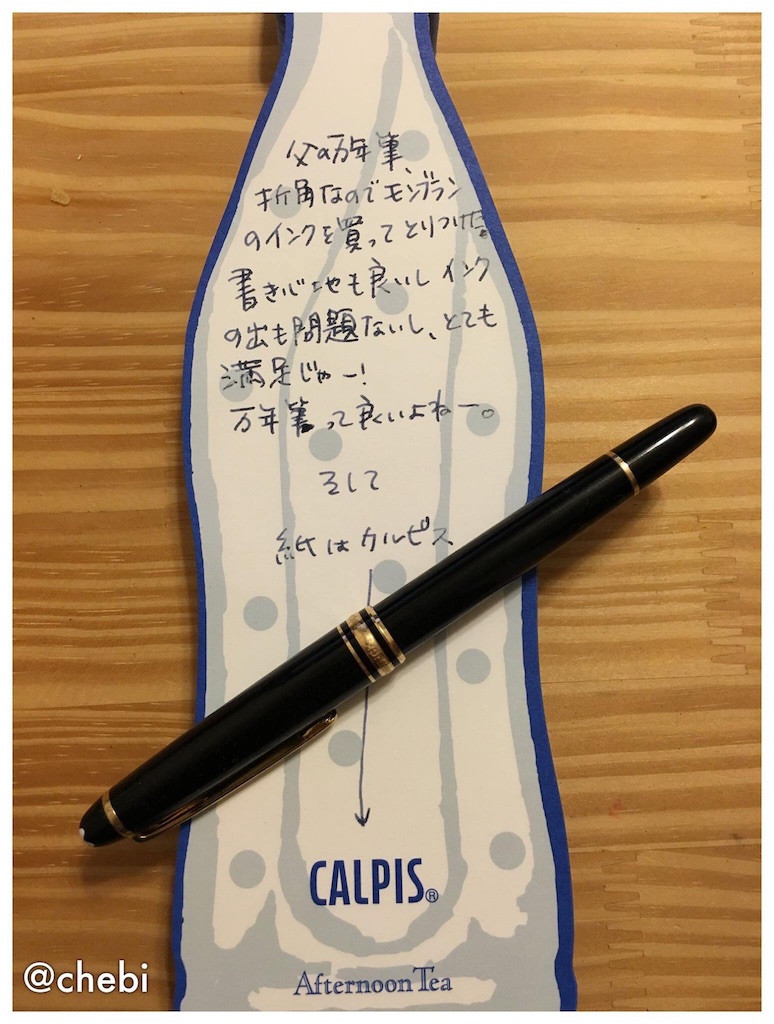 父の万年筆、
折角なのでモンブラン
のインクを買ってとりつけた。
書き心地も良いしインク
の出も問題ないし、とても
満足じゃー！
万年筆って良いよねー。
そして
紙はカルピス
CALPIS®
Afternoon Tea
@chebi